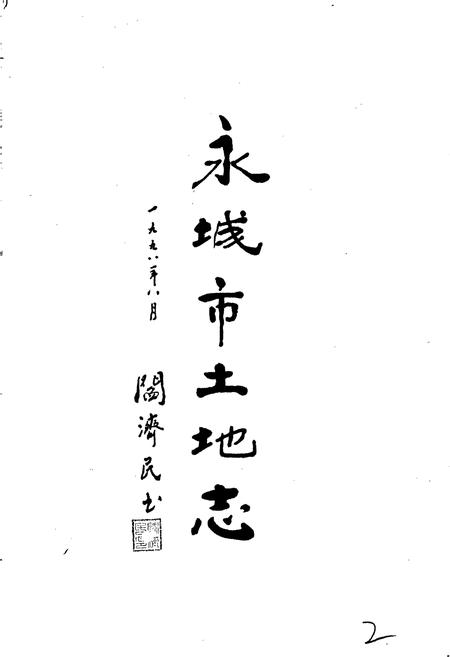 永城市土地志
一九九八年八月
閻濟民书
2